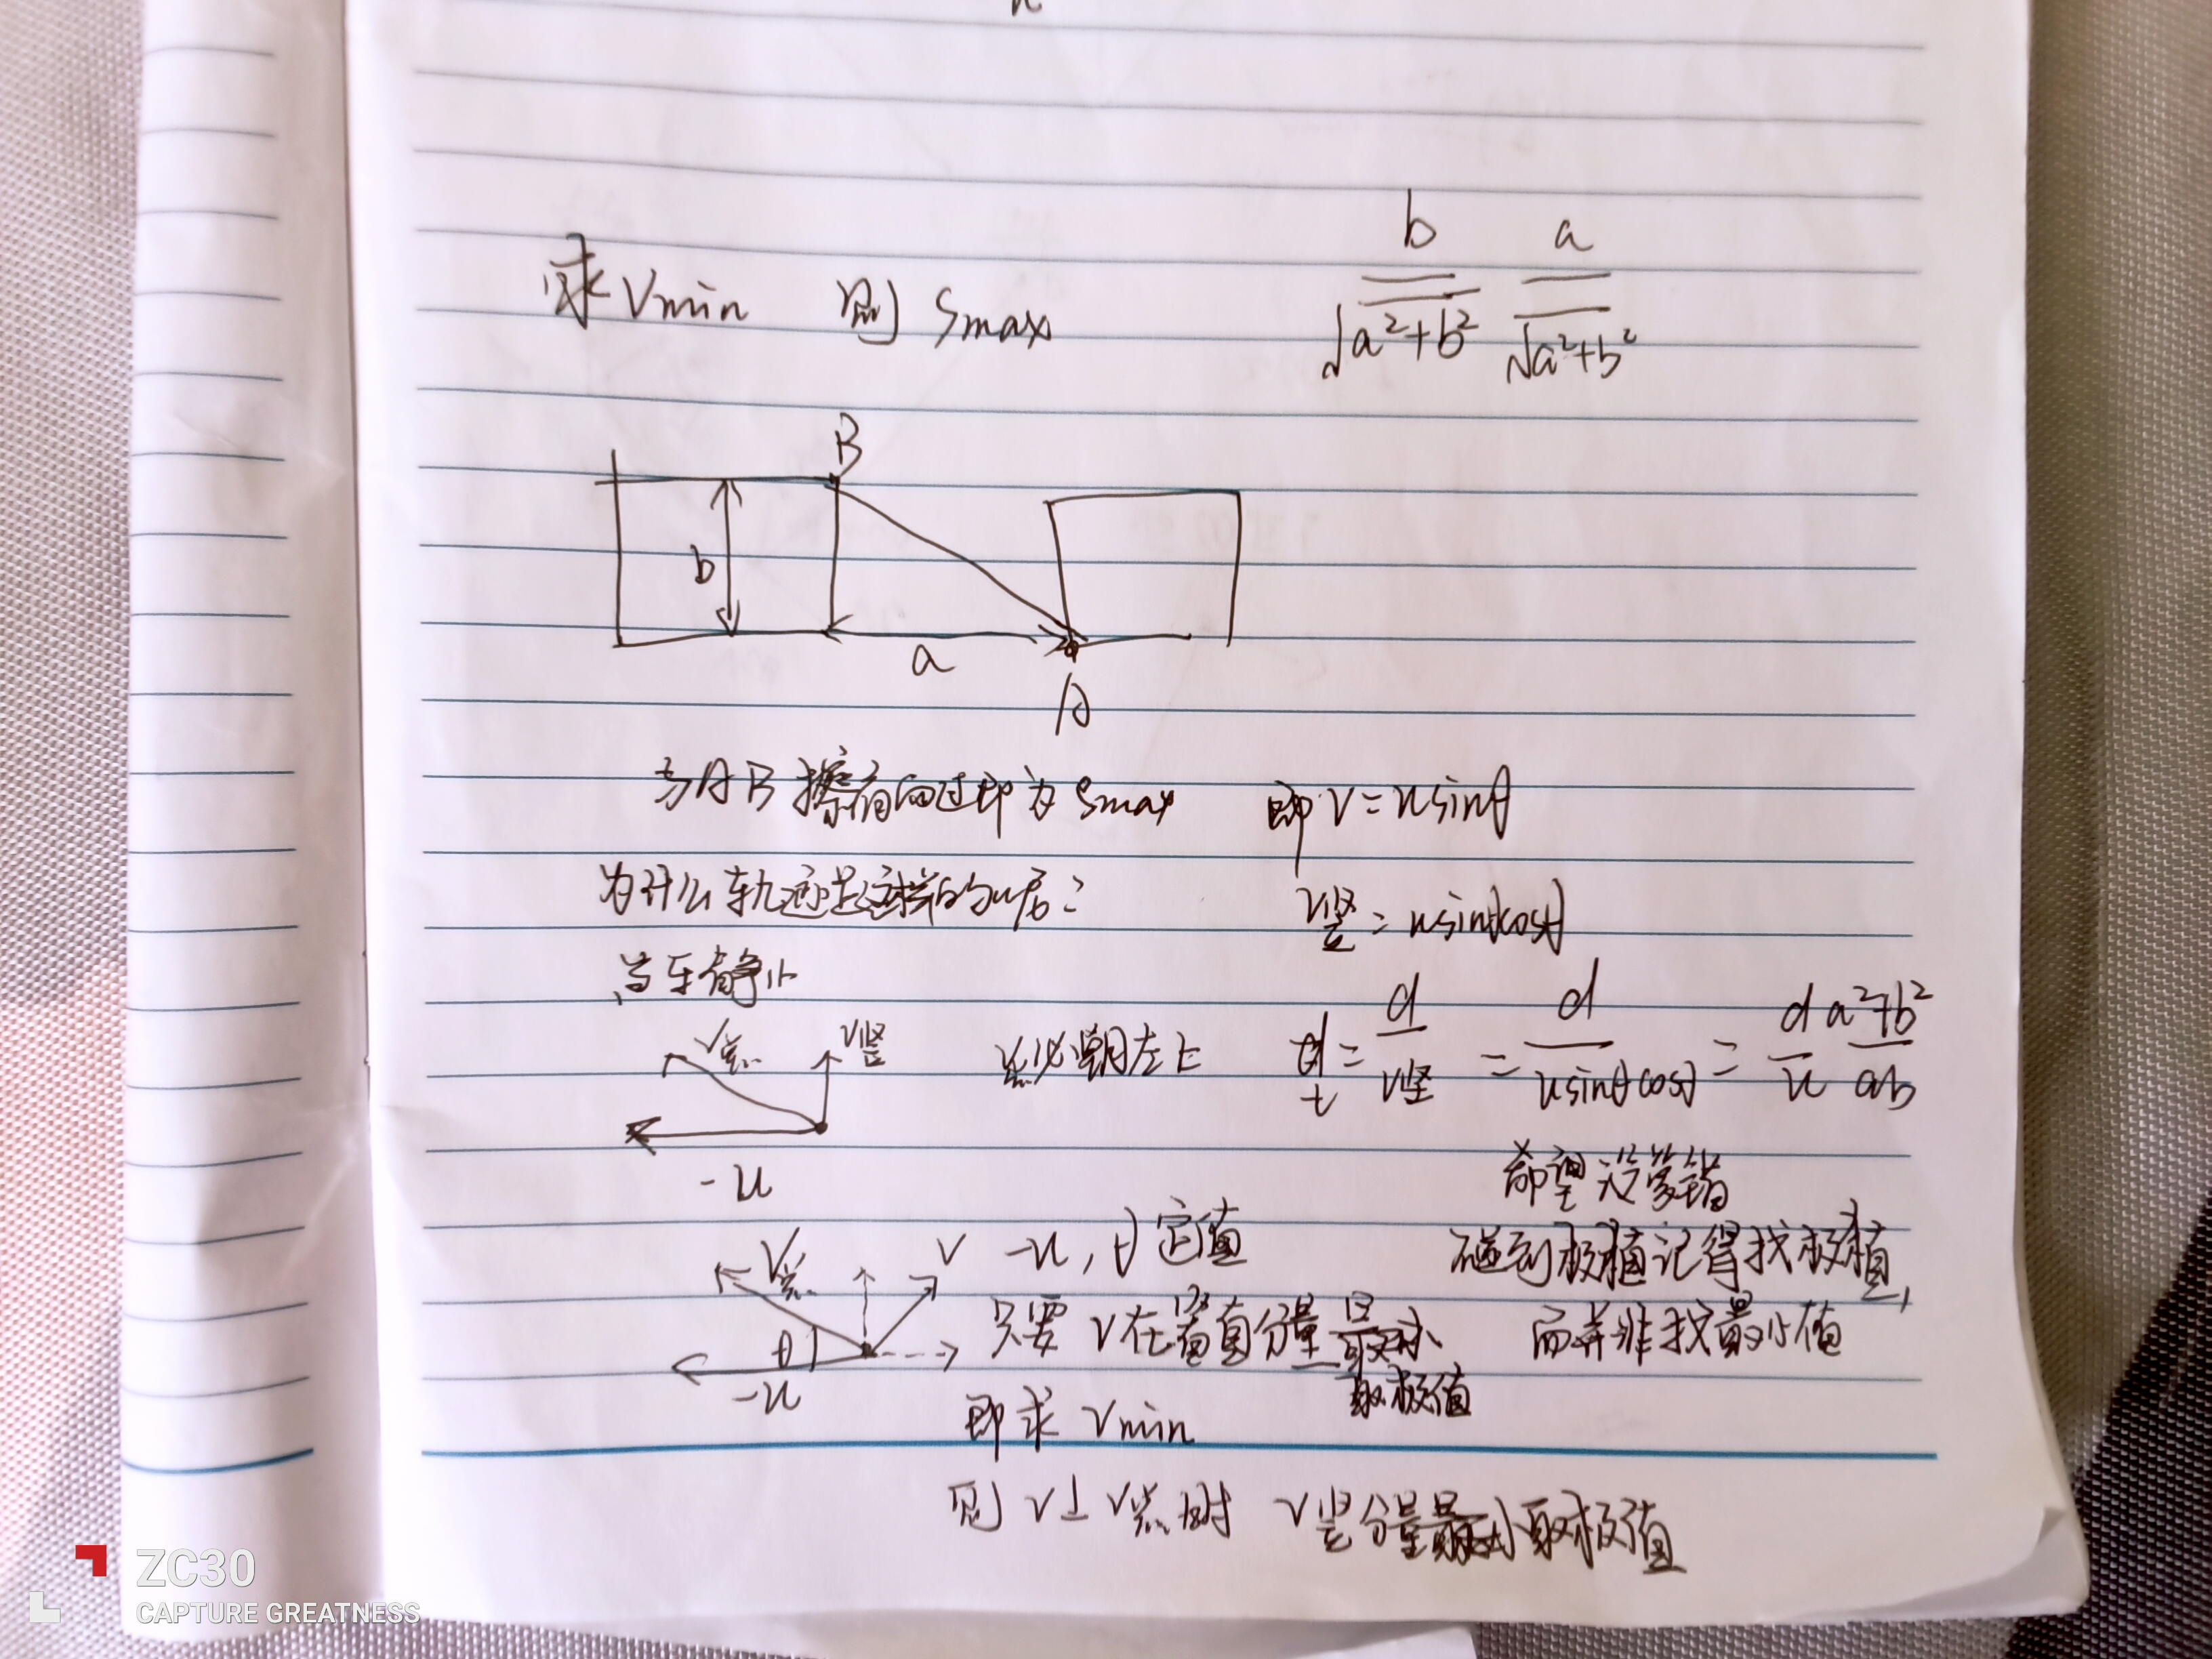 求 Vmin 则 Smax
b/√(a²+b²) a/√(a²+b²)
B
b
a
A
与AB擦肩而过即为 Smax 即 V=usinθ
为什么轨迹是这样的呢?
V竖=usinθcosθ
当车静止
V总 V竖 总必朝左上 t=d/V竖=d/(usinθcosθ)=d/u (a²+b²)/ab
-u
希望没算错
V总 V -u,θ定值
碰到极值记得找极值,
θ 只要 V在竖直分量
而并非找最小值
-u
取极值
即求 Vmin
则 V⊥V总时 V竖分量 取极值
ZC30
CAPTURE GREATNESS